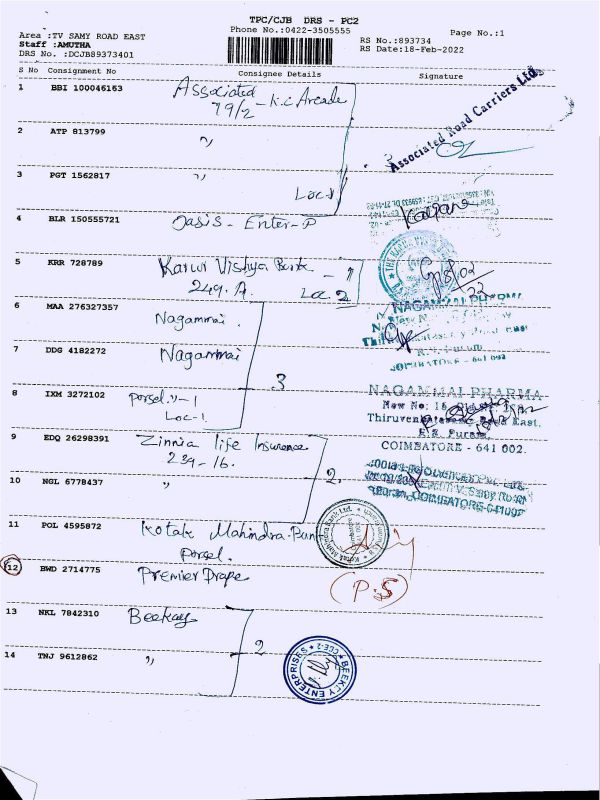 TPC/CJB DRS - PC2
Area :TV SAMY ROAD EAST
Phone No.:0422-3505555
Page No.:1
Staff :AMUTHA
RS No.:893734
DRS No. :DCJB89373401
RS Date:18-Feb-2022
S No Consignment No Consignee Details Signature
1 BBI 100046163 Associated
79/2 - k.c Arcade
Associated Road Carriers Ltd.
2 ATP 813799 "
3 PGT 1562817 "
Loc-1
4 BLR 150555721 Oasis - Enter-P
5 KRR 728789 Karur Vishya Bank - 1
249. A. Loc 2
6 MAA 276327357 Nagammai.
NAGAMMAI PHARMA
7 DDG 4182272 Nagammai
COIMBATORE - 641 002
3
8 IXM 3272102 Porsel. " - 1
Loc-1
NAGAMMAI PHARMA
New No: 16,
East,
R.S. Puram,
COIMBATORE - 641 002.
9 EDQ 26298391 Zinnia life Insurence
239-16.
10 NGL 6778437 " 2.
COIMBATORE-641002
11 POL 4595872 Kotak Mahindra
Porsel.
Kotak Mahindra Bank Ltd.
12 BWD 2714775 Premier Prope
(P.S)
13 NKL 7842310 Beekay
2
14 TNJ 9612862 "
BEEKEY ENTERPRISES
CBE-2